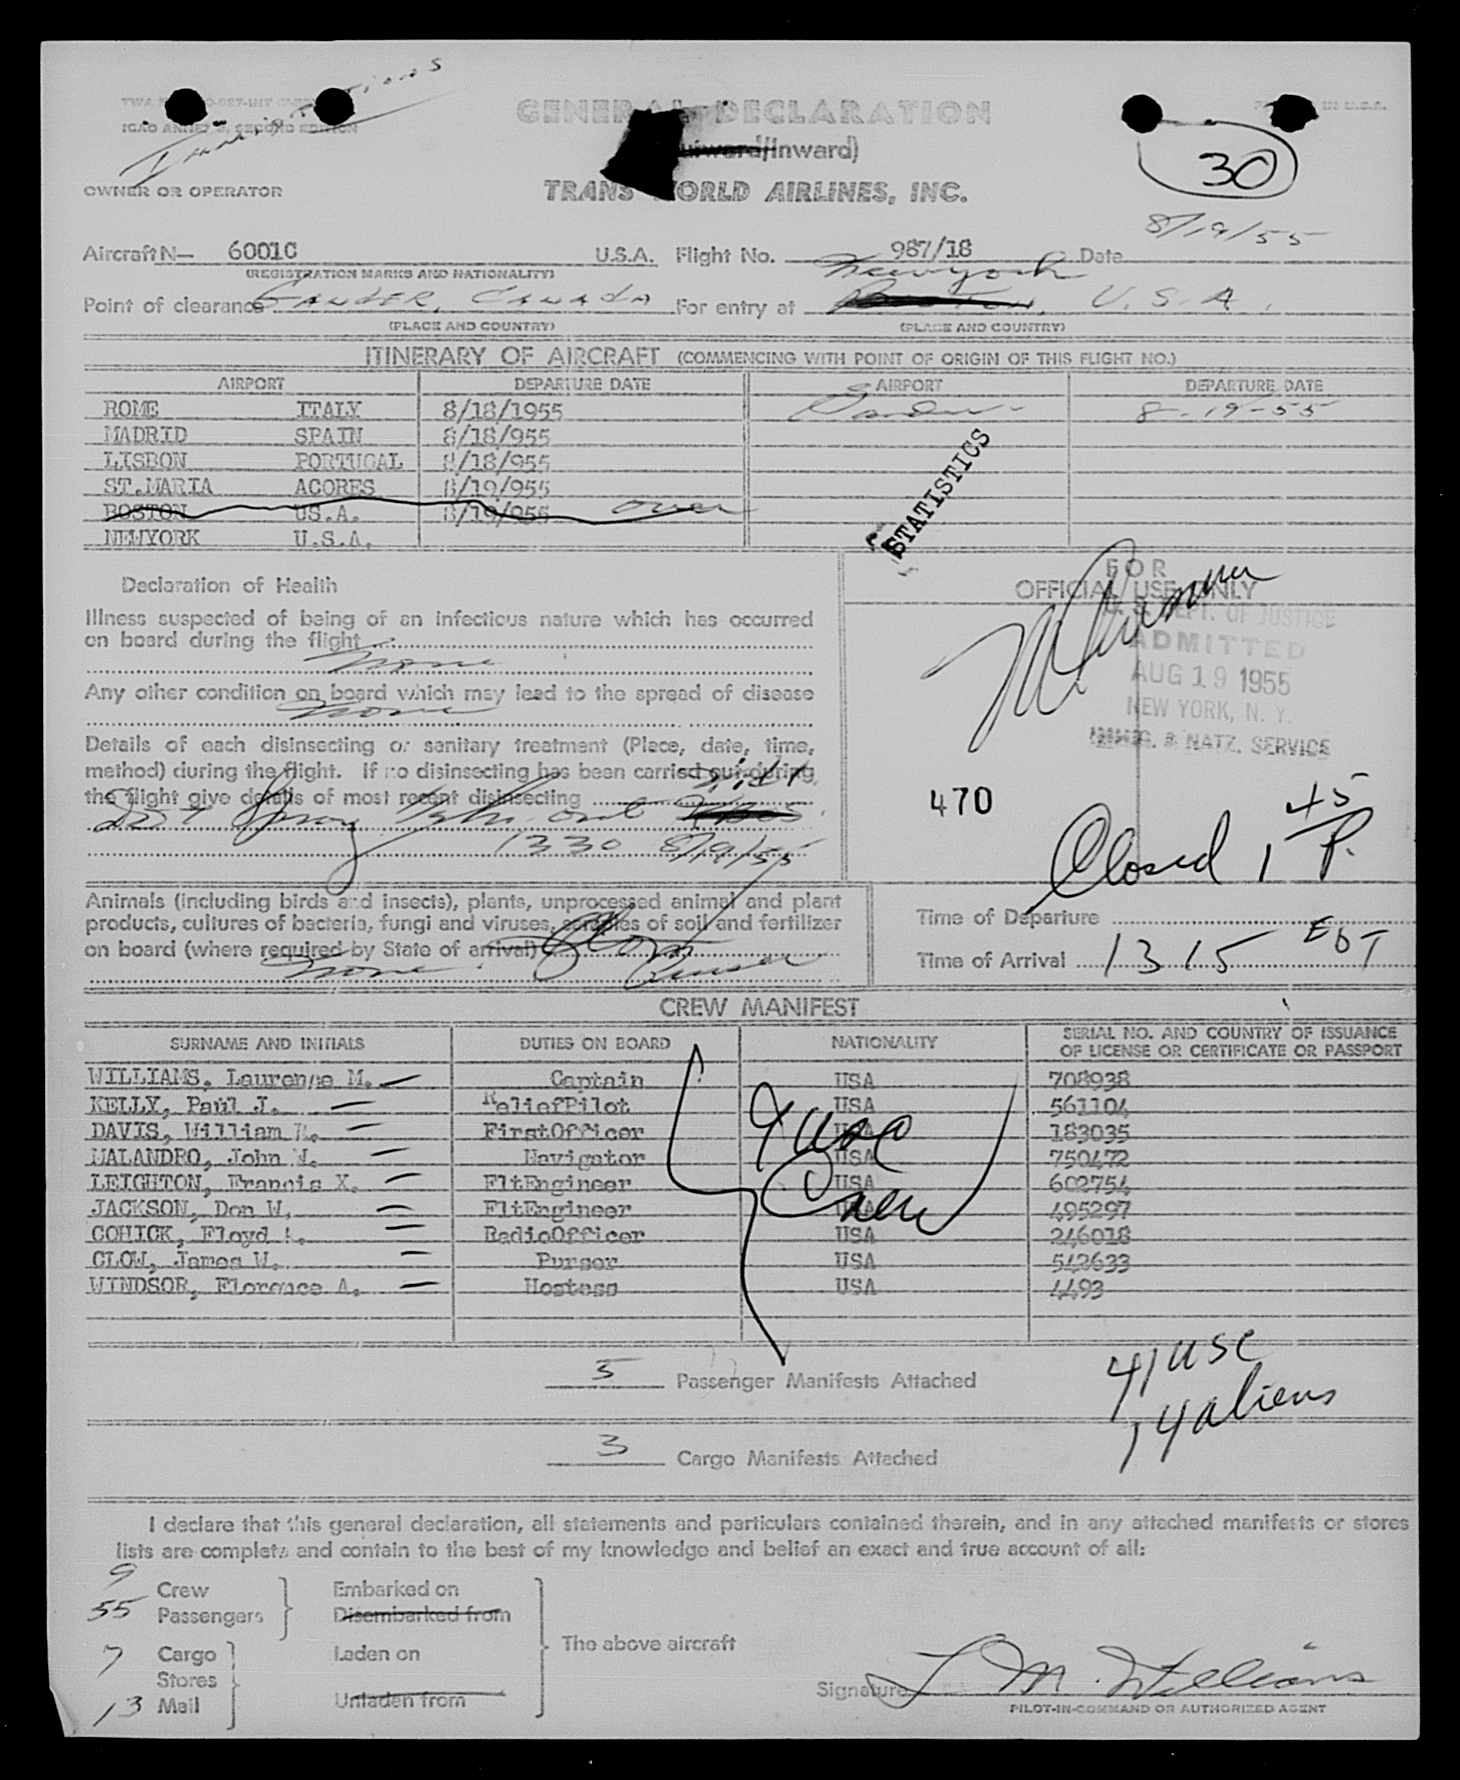 GENERAL DECLARATION
/Inward)
30
ICAO ANNEX 9, SECOND EDITION
OWNER OR OPERATOR
TRANS WORLD AIRLINES, INC.
8/19/55
Aircraft N— 6001C U.S.A. Flight No. 987/18 Date
(REGISTRATION MARKS AND NATIONALITY)
New york
Point of clearance GANDER, CANADA For entry at Boston, U.S.A.
(PLACE AND COUNTRY) (PLACE AND COUNTRY)
ITINERARY OF AIRCRAFT (COMMENCING WITH POINT OF ORIGIN OF THIS FLIGHT NO.)
AIRPORT DEPARTURE DATE AIRPORT DEPARTURE DATE
ROME ITALY 8/18/1955 Gander 8-19-55
MADRID SPAIN 8/18/955
LISBON PORTUGAL 8/18/955
ST.MARIA ACORES 8/19/955
BOSTON US.A. 8/19/955 over
NEWYORK U.S.A.
STATISTICS
Declaration of Health
FOR
OFFICIAL USE ONLY
Illness suspected of being of an infectious nature which has occurred
on board during the flight
none
Any other condition on board which may lead to the spread of disease
none
U. S. DEPT. OF JUSTICE
ADMITTED
AUG 19 1955
NEW YORK, N. Y.
IMMIG. & NATZ. SERVICE
Details of each disinsecting or sanitary treatment (Place, date, time,
method) during the flight. If no disinsecting has been carried out during
the flight give details of most recent disinsecting
DDT Spray
1330 8/19/55
470
Closed 1 45 P.
Animals (including birds and insects), plants, unprocessed animal and plant
products, cultures of bacteria, fungi and viruses, samples of soil and fertilizer
on board (where required by State of arrival)
none. Clow
Purser
Time of Departure
Time of Arrival 1315 EDT
CREW MANIFEST
SURNAME AND INITIALS DUTIES ON BOARD NATIONALITY SERIAL NO. AND COUNTRY OF ISSUANCE
OF LICENSE OR CERTIFICATE OR PASSPORT
WILLIAMS, Laurence M. Captain USA 708938
KELLY, Paul J. ReliefPilot USA 561104
DAVIS, William R. FirstOfficer USA 183035
MALANDRO, John W. Navigator USA 750472
LEIGHTON, Francis X. FltEngineer USA 602754
JACKSON, Don W. FltEngineer USA 495297
COHICK, Floyd RadioOfficer USA 246018
CLOW, James W. Purser USA 542633
WINDSOR, Florence A. Hostess USA 4493
9 usc
Crew
5 Passenger Manifests Attached
41 usc
14 aliens
3 Cargo Manifests Attached
I declare that this general declaration, all statements and particulars contained therein, and in any attached manifests or stores
lists are complete and contain to the best of my knowledge and belief an exact and true account of all:
9 Crew Embarked on
55 Passengers Disembarked from
7 Cargo Laden on The above aircraft
Stores
13 Mail Unladen from
Signature L M. Williams
PILOT-IN-COMMAND OR AUTHORIZED AGENT